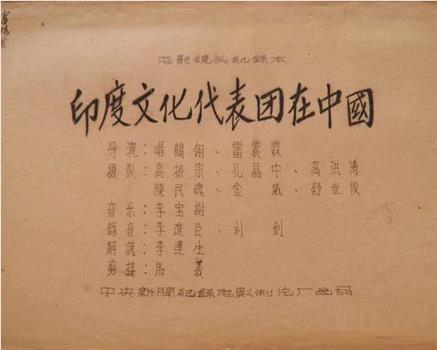 电影鏡头紀錄本
印度文化代表团在中國
导演：唱鶴翎、雷震霖
摄影：高振宗、孔晶中、高洪
陳民魂、金威、舒世俊
音乐：李宝樹
錄音：李進臣、刘劍
解説：李連生
剪接：馬義
中央新聞紀錄电影制片厂出品